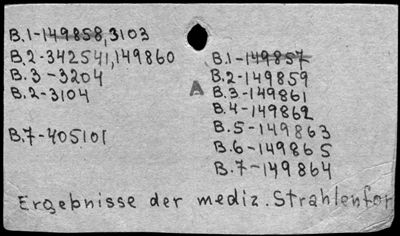 B.1-149858,3103
B.2-342541,149860
B.3-3204
B.2-3104
B.7-405101
A
B.1-149857
B.2-149859
B.3-149861
B.4-149862
B.5-149863
B.6-149865
B.7-149864
Ergebnisse der mediz. Strahlenfor